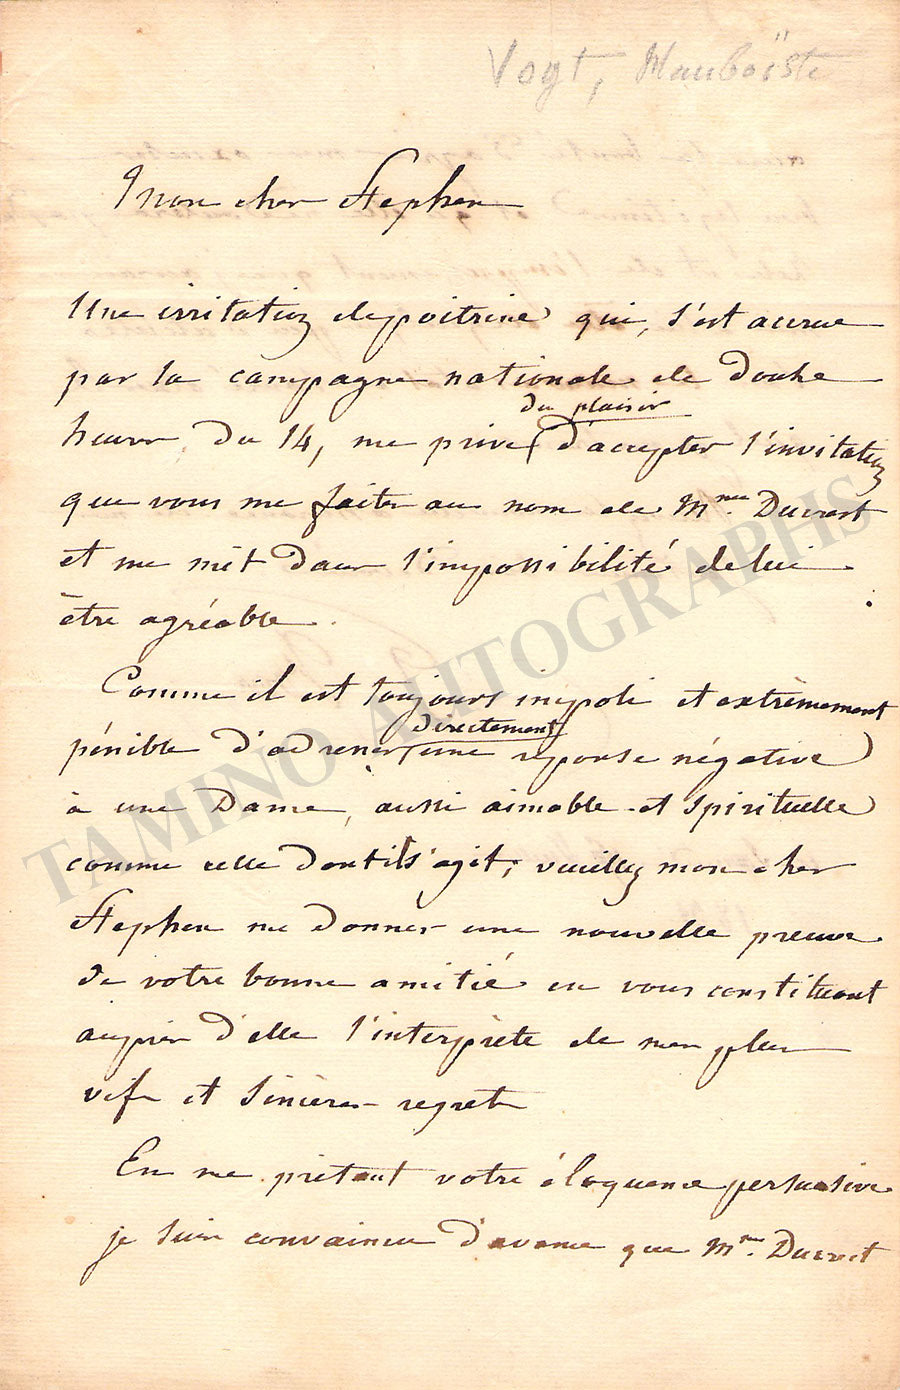 Vogt, Hauboïste
Mon cher Stephen
Une irritation de poitrine qui, s'est accrue
par la campagne nationale de douze
heures du 14, me prive du plaisir d'accepter l'invitation
que vous me faites au nom de Mme. Ducrest
et me mèt dans l'impossibilité de lui
être agréable.
Comme il est toujours impoli et extrèmement
pénible d'adresser directement une réponse négative
à une Dame, aussi aimable et spirituelle
comme celle dont il s'agit; veuillez mon cher
Stephen me donner une nouvelle preuve
de votre bonne amitié en vous constituant
auprès d'elle l'interprète de mes plus
vifs et sincères regrets
En me prétant votre éloquence persuasive
je suis convaincu d'avance que Mme. Ducrest
TAMINO AUTOGRAPHS